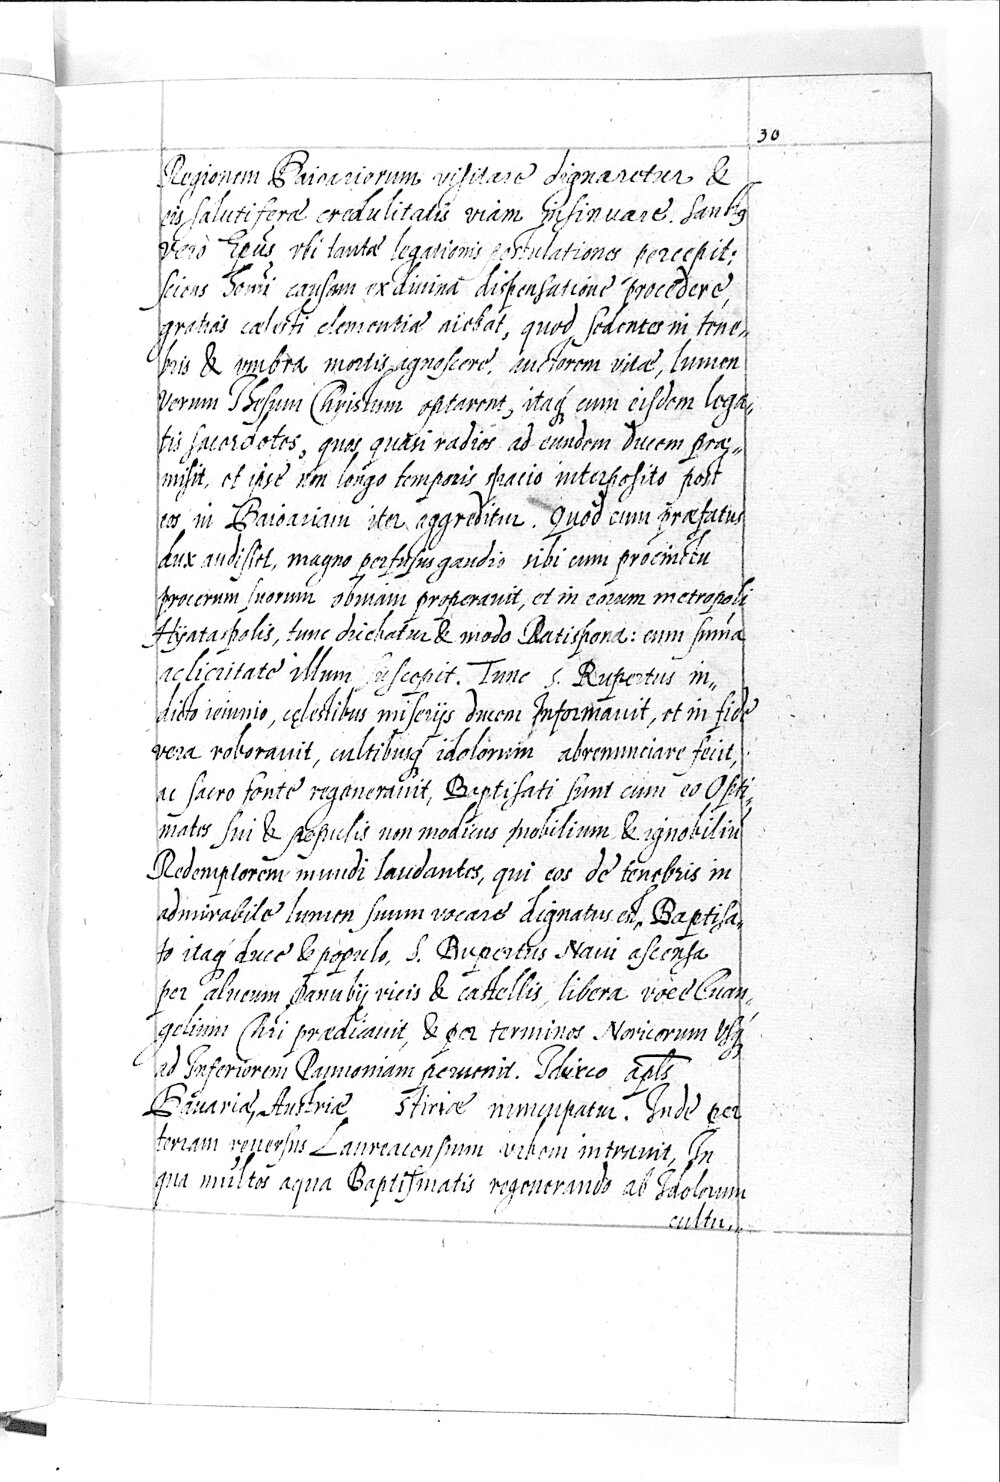 30
Regionem Baioariorum visitare dignaretur &
eis salutiferæ credulitatis viam insinuare. Sanctꝯ
verò Epūs vbi tantæ legationis postulationes percepit;
sciens Domī causam ex divinā dispensatione procedere,
gratias cælesti clementiæ aiebat, quod sedentes in tene„
bris & vmbra mortis agnoscere, auctorem vitæ, lumen
verum Jhesum Christum optarent, itaq́ cum eisdem lega„
tis sacerdotes, quos quasi radios ad eundem ducem præ„
misit, et ipse non longo temporis spacio interposito post
eos in Baioariam iter aggreditur. Quod cum præfatus
dux audisset, magno perfusus gaudio sibi cum procinctu
procerum suorum obviam properauit, et in eorum metropoli
Hyataspolis, tunc dicebatur & modo Ratispona: cum sum̄a
acliritate illum suscepit. Tunc S. Rupertus in„
dicto ieiunio, cęlestibus miserijs ducem Informauit, et in fide
vera roborauit, cultibusq́ idolorum abrenunciare fecit,
ac sacro fonte regenerauit, Baptisati sunt cum eo Opti„
mates sui & populis non modicus nobilium & ignobiliū
Redemptorem mundi laudantes, qui eos de tenebris in
admirabile lumen suum vocare dignatus est, Baptisa„
to itaq́ duce & populo, S. Rupertus Naui ascensa
per alueum Danubij vicis & castellis, libera voce Euan„
gelium Chri prædicauit, & per terminos Noricorum vsq́
ad Inferiorem Pannoniam peruenit.
Bauariæ, Austriæ Stiriæ nuncupatur. Inde per
terram reuersus Laureacensium vrbem intrauit, In
qua multos aqua Baptismatis regenerando ab Idolorum
cultu„